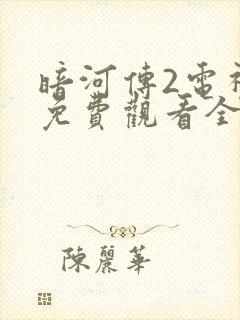 暗河傳2電視
免費觀看全
陳麗華